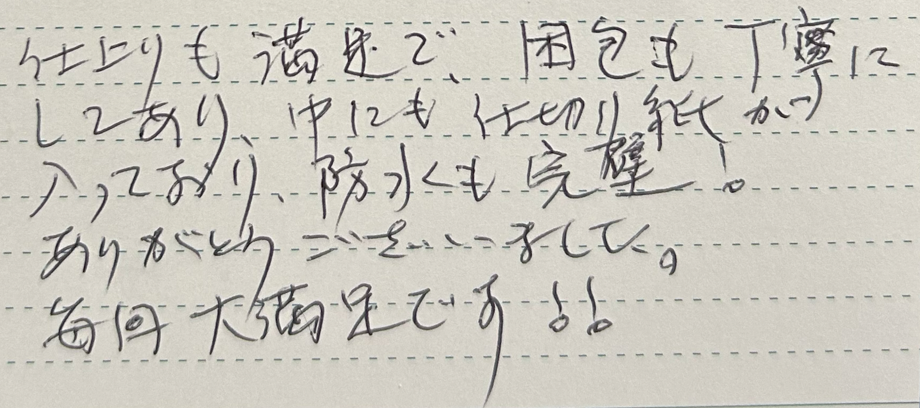 仕上りも満足で、困包も丁寧に
してあり、中にも仕切り紙が
入っており、防水くも完璧！
ありがとうございました。
毎回大満足です！！